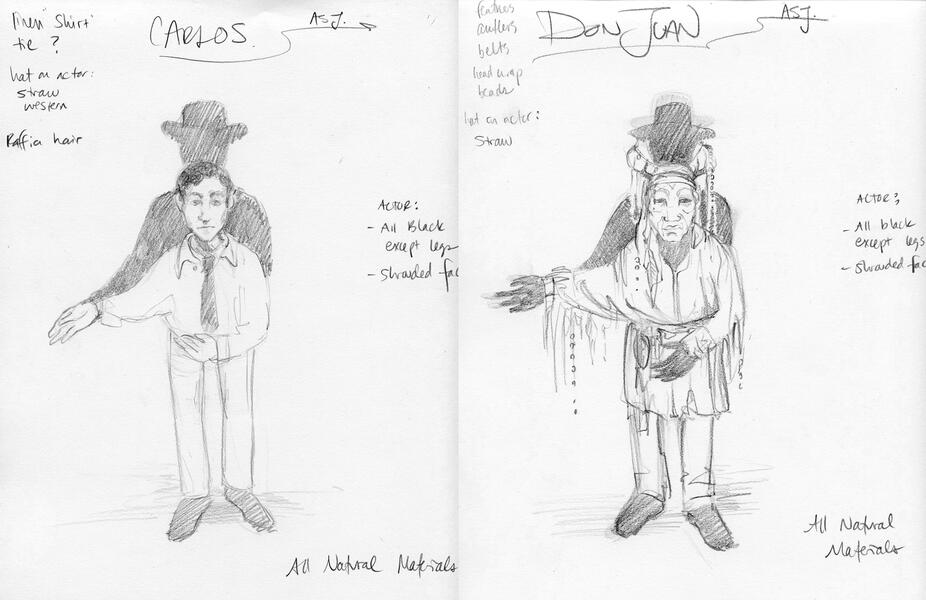 Men" Shirt
tie ?
hat on actor:
straw
western
Raffia hair
CARLOS.
AS J.
ACTOR:
- All Black
except legs
- Shrouded fac
All Natural Materials
feathers
antlers
belts
head wrap
beads
hat on actor:
straw
DON JUAN
AS J.
ACTOR:
- All black
except legs
- Shrouded fac
All Natural
Materials